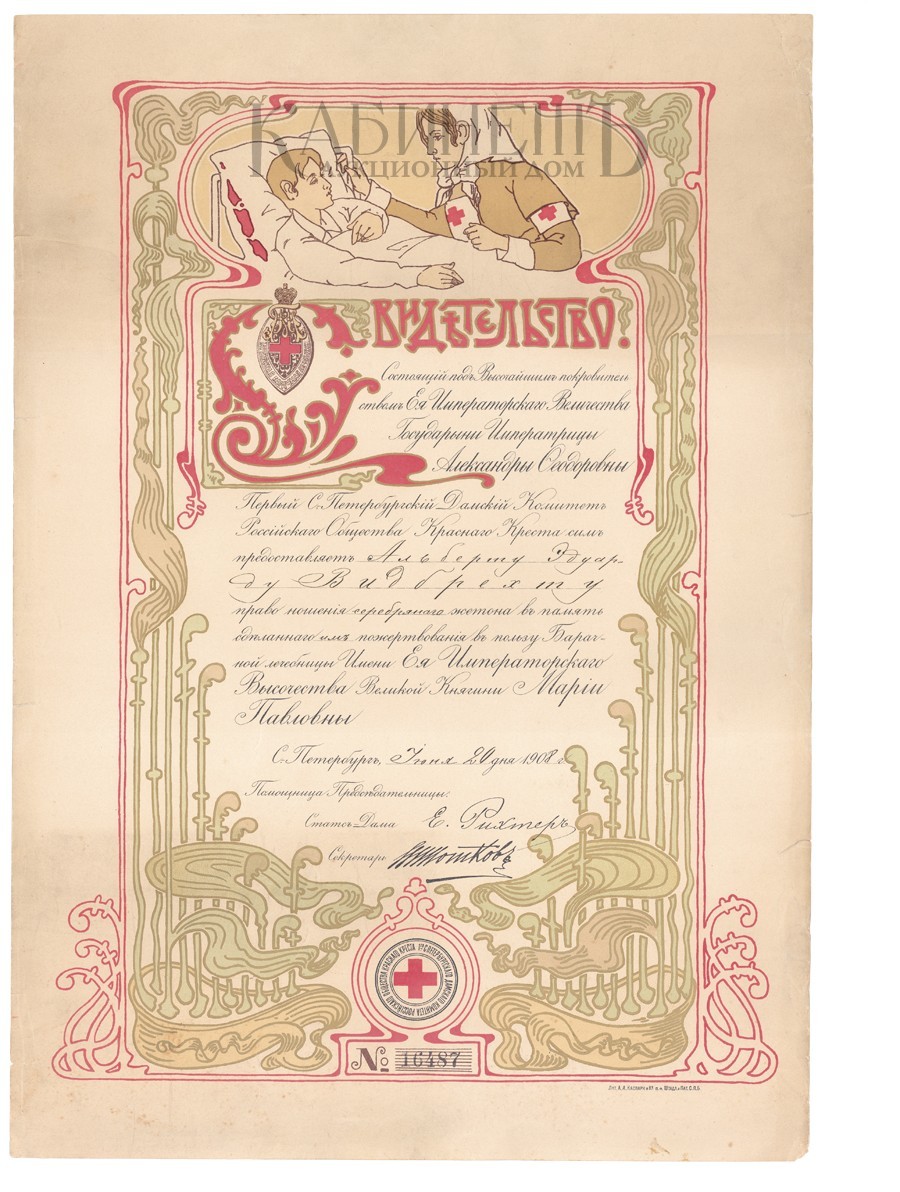 КАБИНЕТЪ
АУКЦИОННЫЙ ДОМ
СВИДѢТЕЛЬСТВО.
Состоящій подъ Высочайшимъ покровитель
ствомъ Ея Императорскаго Величества
Государыни Императрицы
Александры Ѳеодоровны
Первый С.-Петербургскій Дамскій Комитетъ
Россійскаго Общества Краснаго Креста симъ
предоставляетъ Альберту Эдуар-
ду Видбрехту
право ношенія серебрянаго жетона въ память
сдѣланнаго имъ пожертвованія въ пользу Барач-
ной лечебницы Имени Ея Императорскаго
Высочества Великой Княгини Маріи
Павловны
С.-Петербургъ, Іюня 20 дня 1908 г.
Помощница Предсѣдательницы:
Статсъ-Дама Е. Рихтеръ
Секретарь
№ 16487